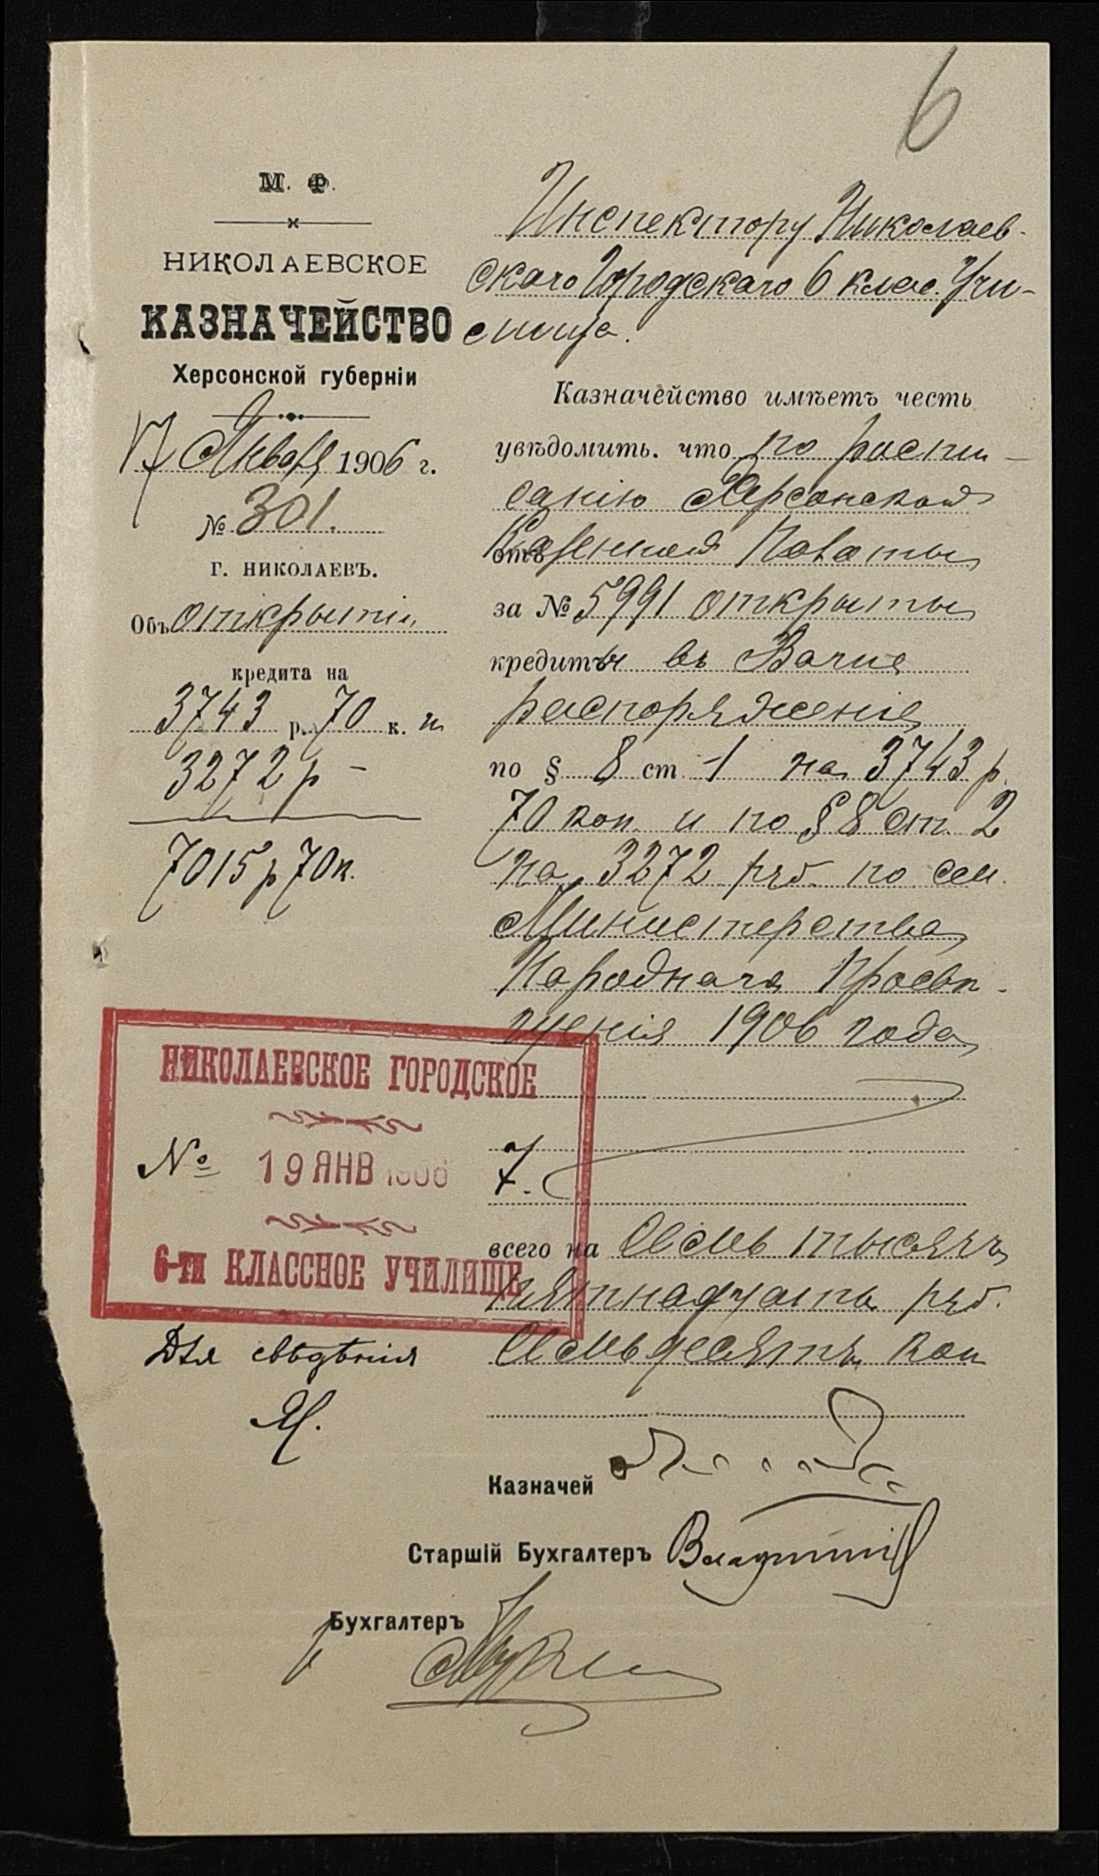 6
М. Ф.
НИКОЛАЕВСКОЕ
КАЗНАЧЕЙСТВО
Херсонской губерніи
17 Января 1906 г.
№ 301.
г. НИКОЛАЕВЪ.
Объ открытіи
кредита на
3743 р. 70 к. и
3272 р –
7015 р 70 к.
Инспектору Николаев-
скаго Городскаго 6 клас. Учи-
лища.
Казначейство имѣетъ честь
увѣдомить, что по распи-
санію Херсонской
отъ Казенной Палаты
за № 5991 открыты
кредиты въ Ваше
распоряженіе
по § 8 ст. 1 на 3743 р.
70 коп. и по § 8 ст. 2
на 3272 руб. по см.
Министерства
Народнаго Просвѣ-
щенія 1906 года
НИКОЛАЕВСКОЕ ГОРОДСКОЕ
№ 19 ЯНВ 1906 7.
6-ти КЛАССНОЕ УЧИЛИЩЕ
всего на Семь тысячъ
пятнадцать руб.
Семьдесятъ коп
Для свѣдѣнія
Казначей
Старшій Бухгалтеръ
Бухгалтеръ